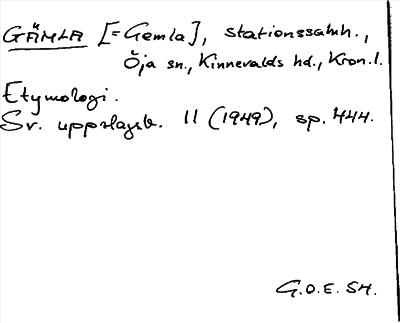 GÄMLA [=Gemla], stationssamh.,
Öja sn., Kinnevalds hd., Kron. l.
Etymologi.
Sv. uppslagsb. 11 (1949), sp. 444.
G.O.E. SH.